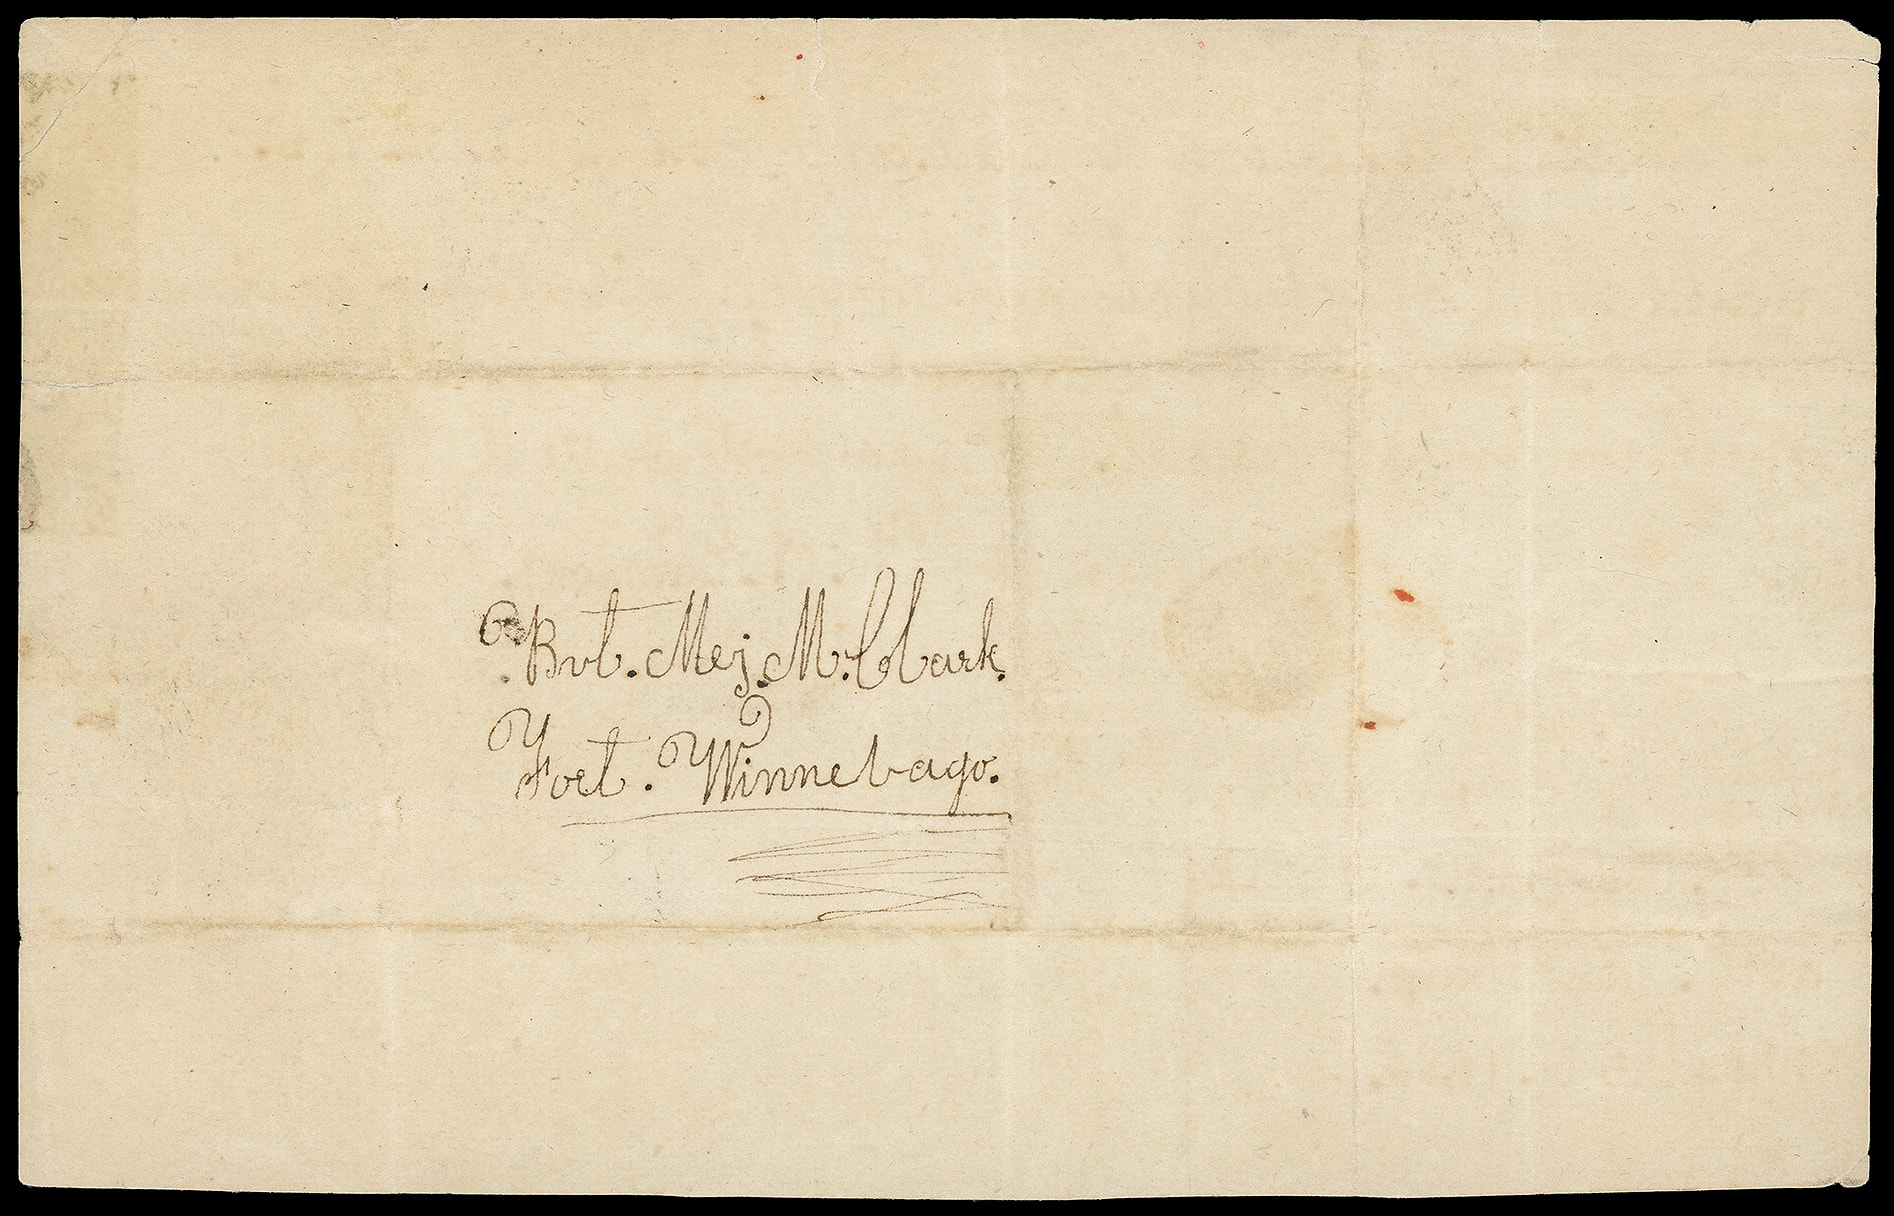 Bvt. Mej. M. Clark.
Fort. Winnebago.